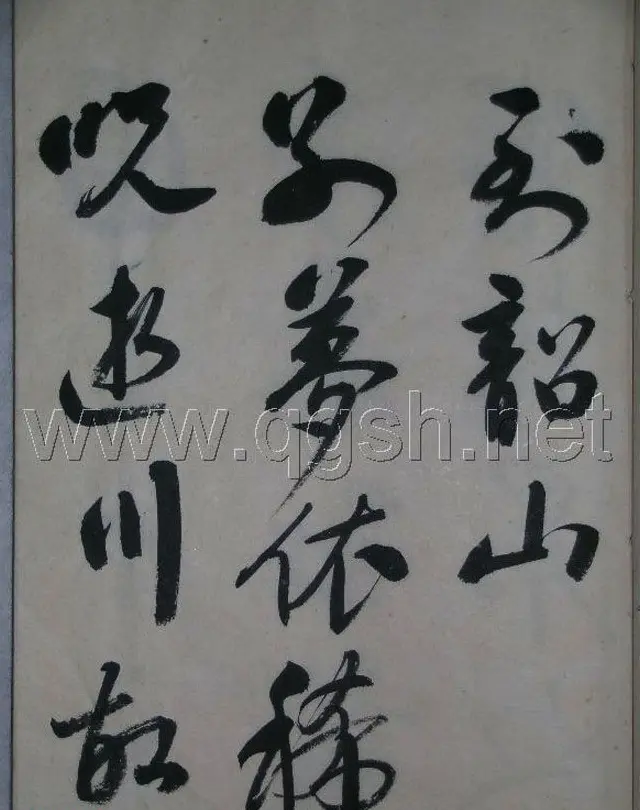 到韶山
别梦依稀
咒逝川故
www.qgsh.net